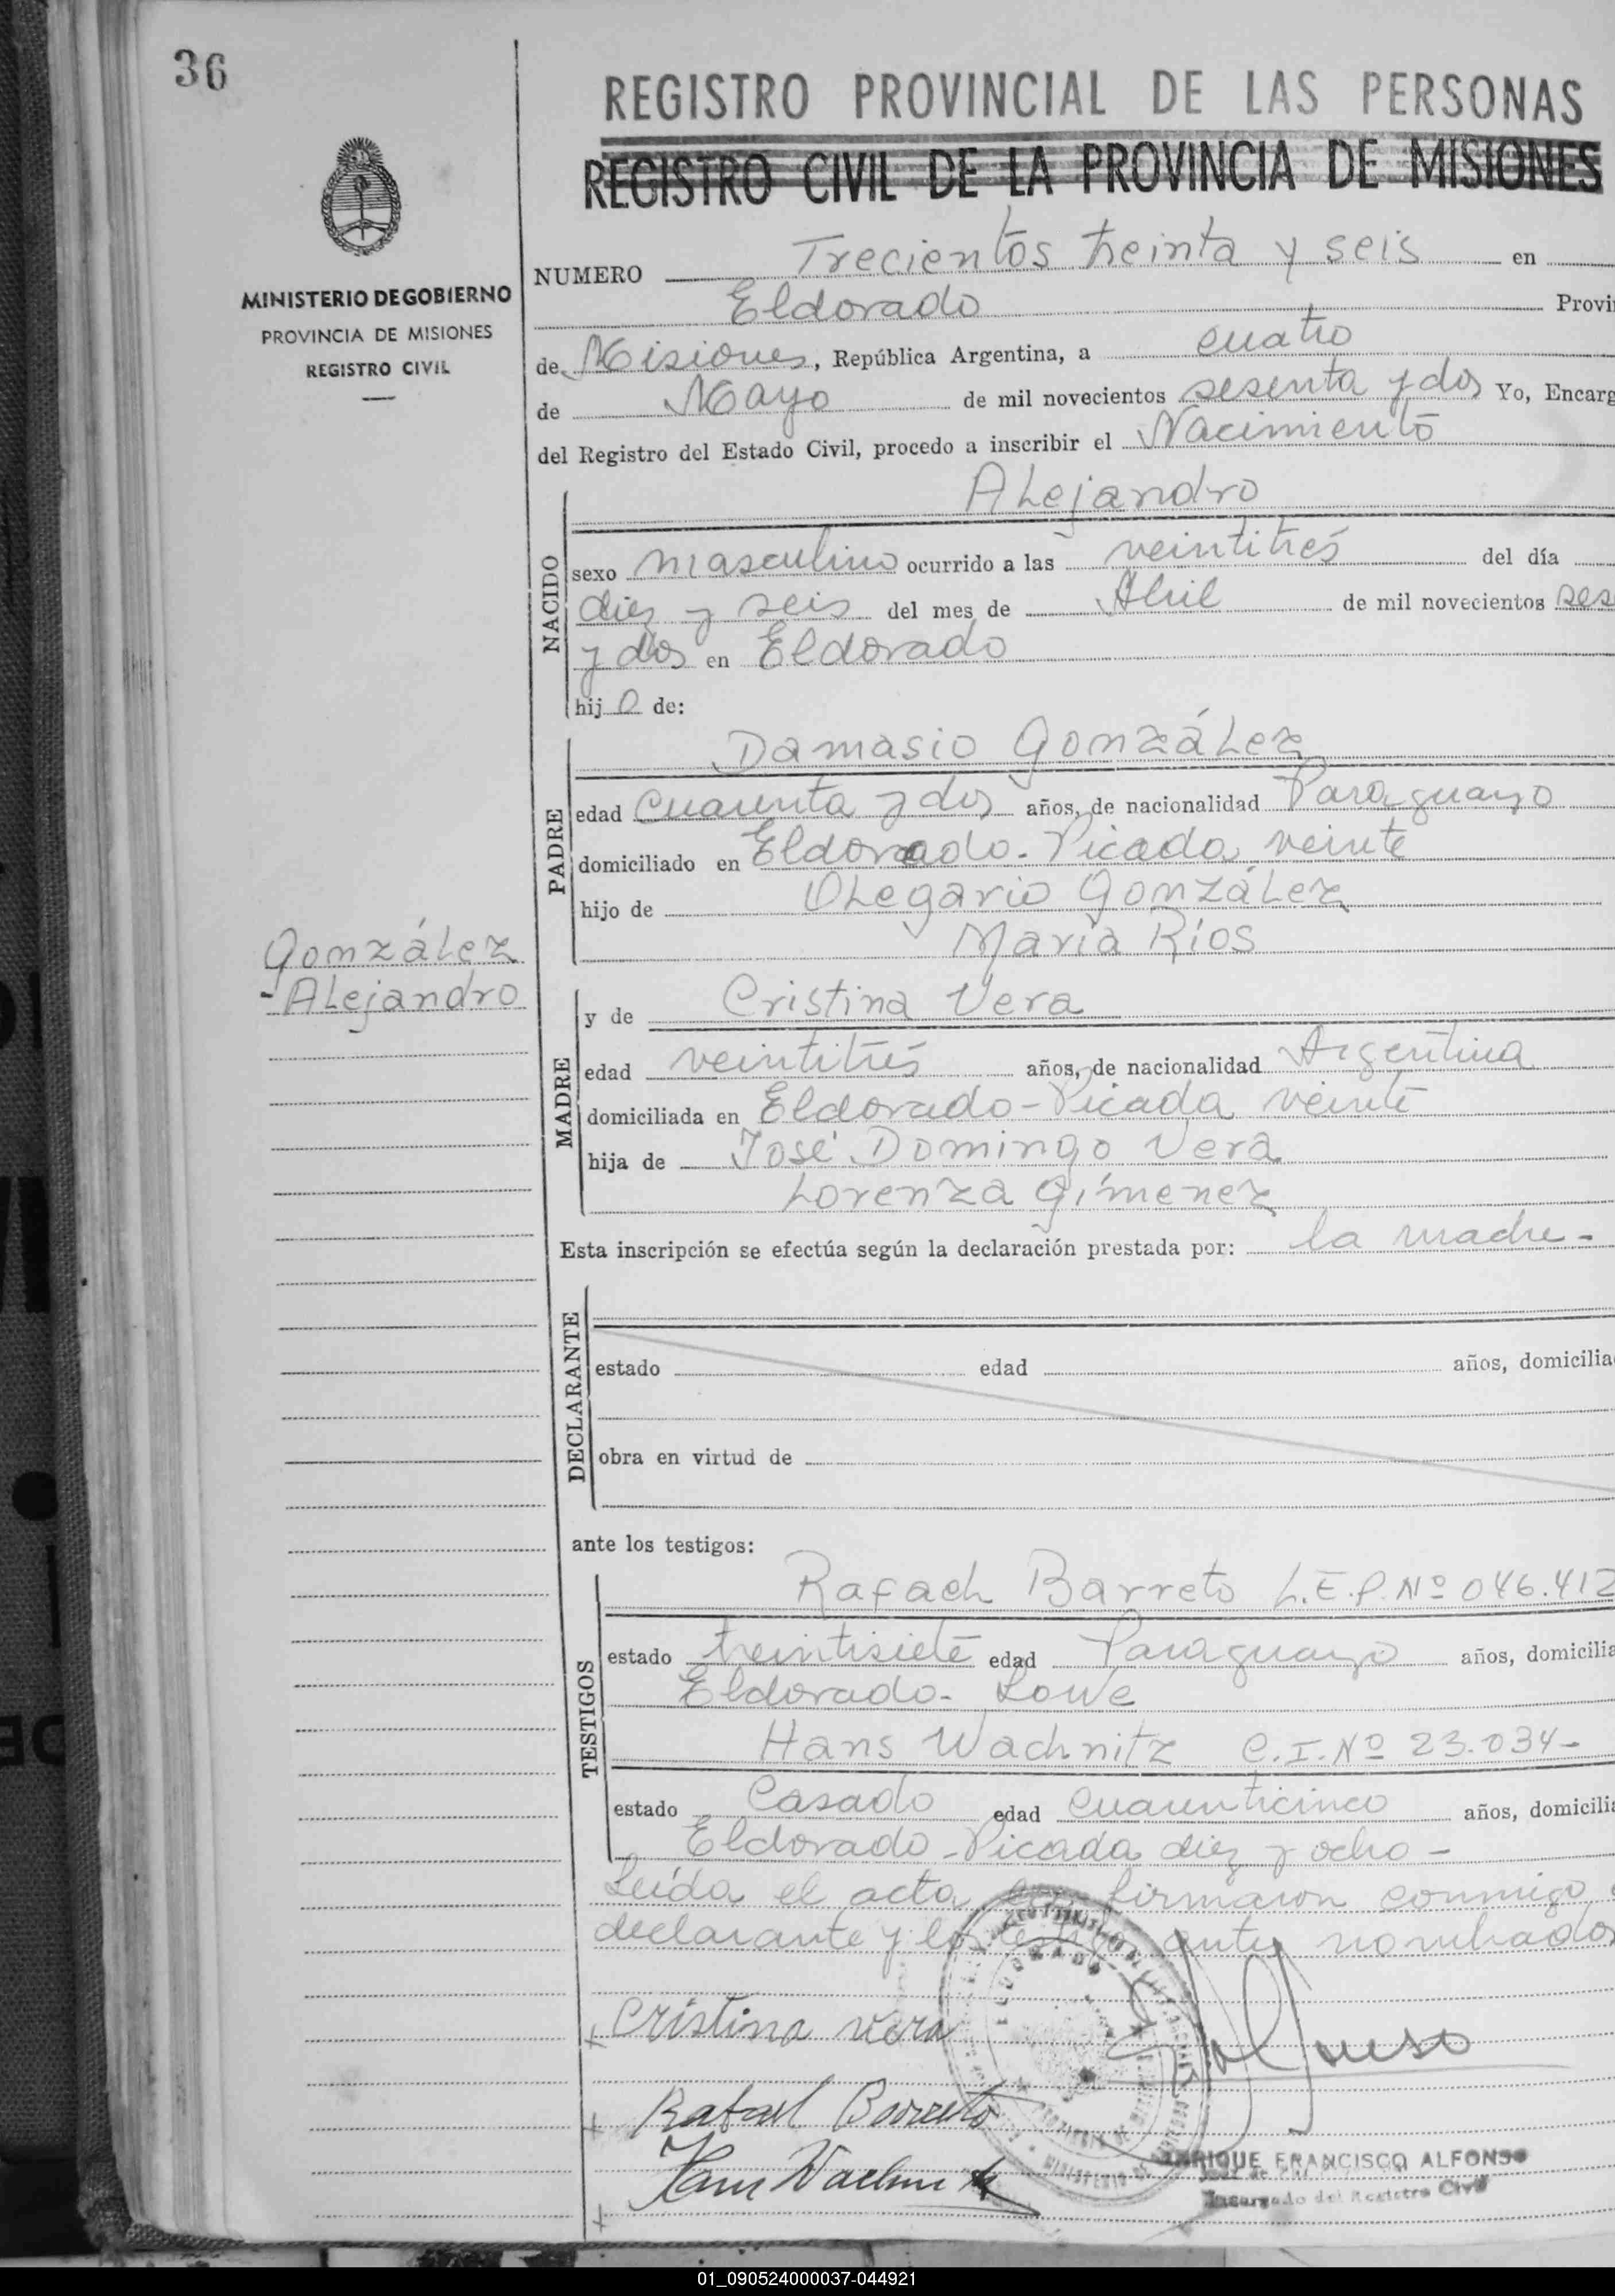 36
REGISTRO PROVINCIAL DE LAS PERSONAS
REGISTRO CIVIL DE LA PROVINCIA DE MISIONES
MINISTERIO DE GOBIERNO
PROVINCIA DE MISIONES
REGISTRO CIVIL
NUMERO Trecientos treinta y seis en
Eldorado Provi
de Misiones, República Argentina, a cuatro
de Mayo de mil novecientos sesenta y dos Yo, Encarg
del Registro del Estado Civil, procedo a inscribir el Nacimiento
Alejandro
NACIDO
sexo masculino ocurrido a las veintitrés del día
diez y seis del mes de Abril de mil novecientos ses
y dos en Eldorado
hijo de:
Damasio González
PADRE
edad cuarenta y dos años, de nacionalidad Paraguayo
domiciliado en Eldorado-Picada veinte
hijo de Olegario González
María Ríos
González
-Alejandro
y de Cristina Vera
MADRE
edad veintitrés años, de nacionalidad Argentina
domiciliada en Eldorado-Picada veinte
hija de José Domingo Vera
Lorenza Gímenez
Esta inscripción se efectúa según la declaración prestada por: la madre-
DECLARANTE
estado edad años, domicilia
obra en virtud de
ante los testigos:
Rafael Barreto L.E.P. Nº 046.412
TESTIGOS
estado treintisiete edad Paraguayo años, domicilia
Eldorado- Lowe
Hans Wachnitz C.I. Nº 23.034-
estado Casado edad cuarenticinco años, domicilia
Eldorado-Picada diez y ocho-
Leída el acta la firmaron conmigo
declarante y los testigos antes nombrados
Cristina Vera
Alfonso
Rafael Barreto
Hans Wachnitz
ENRIQUE FRANCISCO ALFONSO
Encargado del Registro Civil
01_090524000037-044921